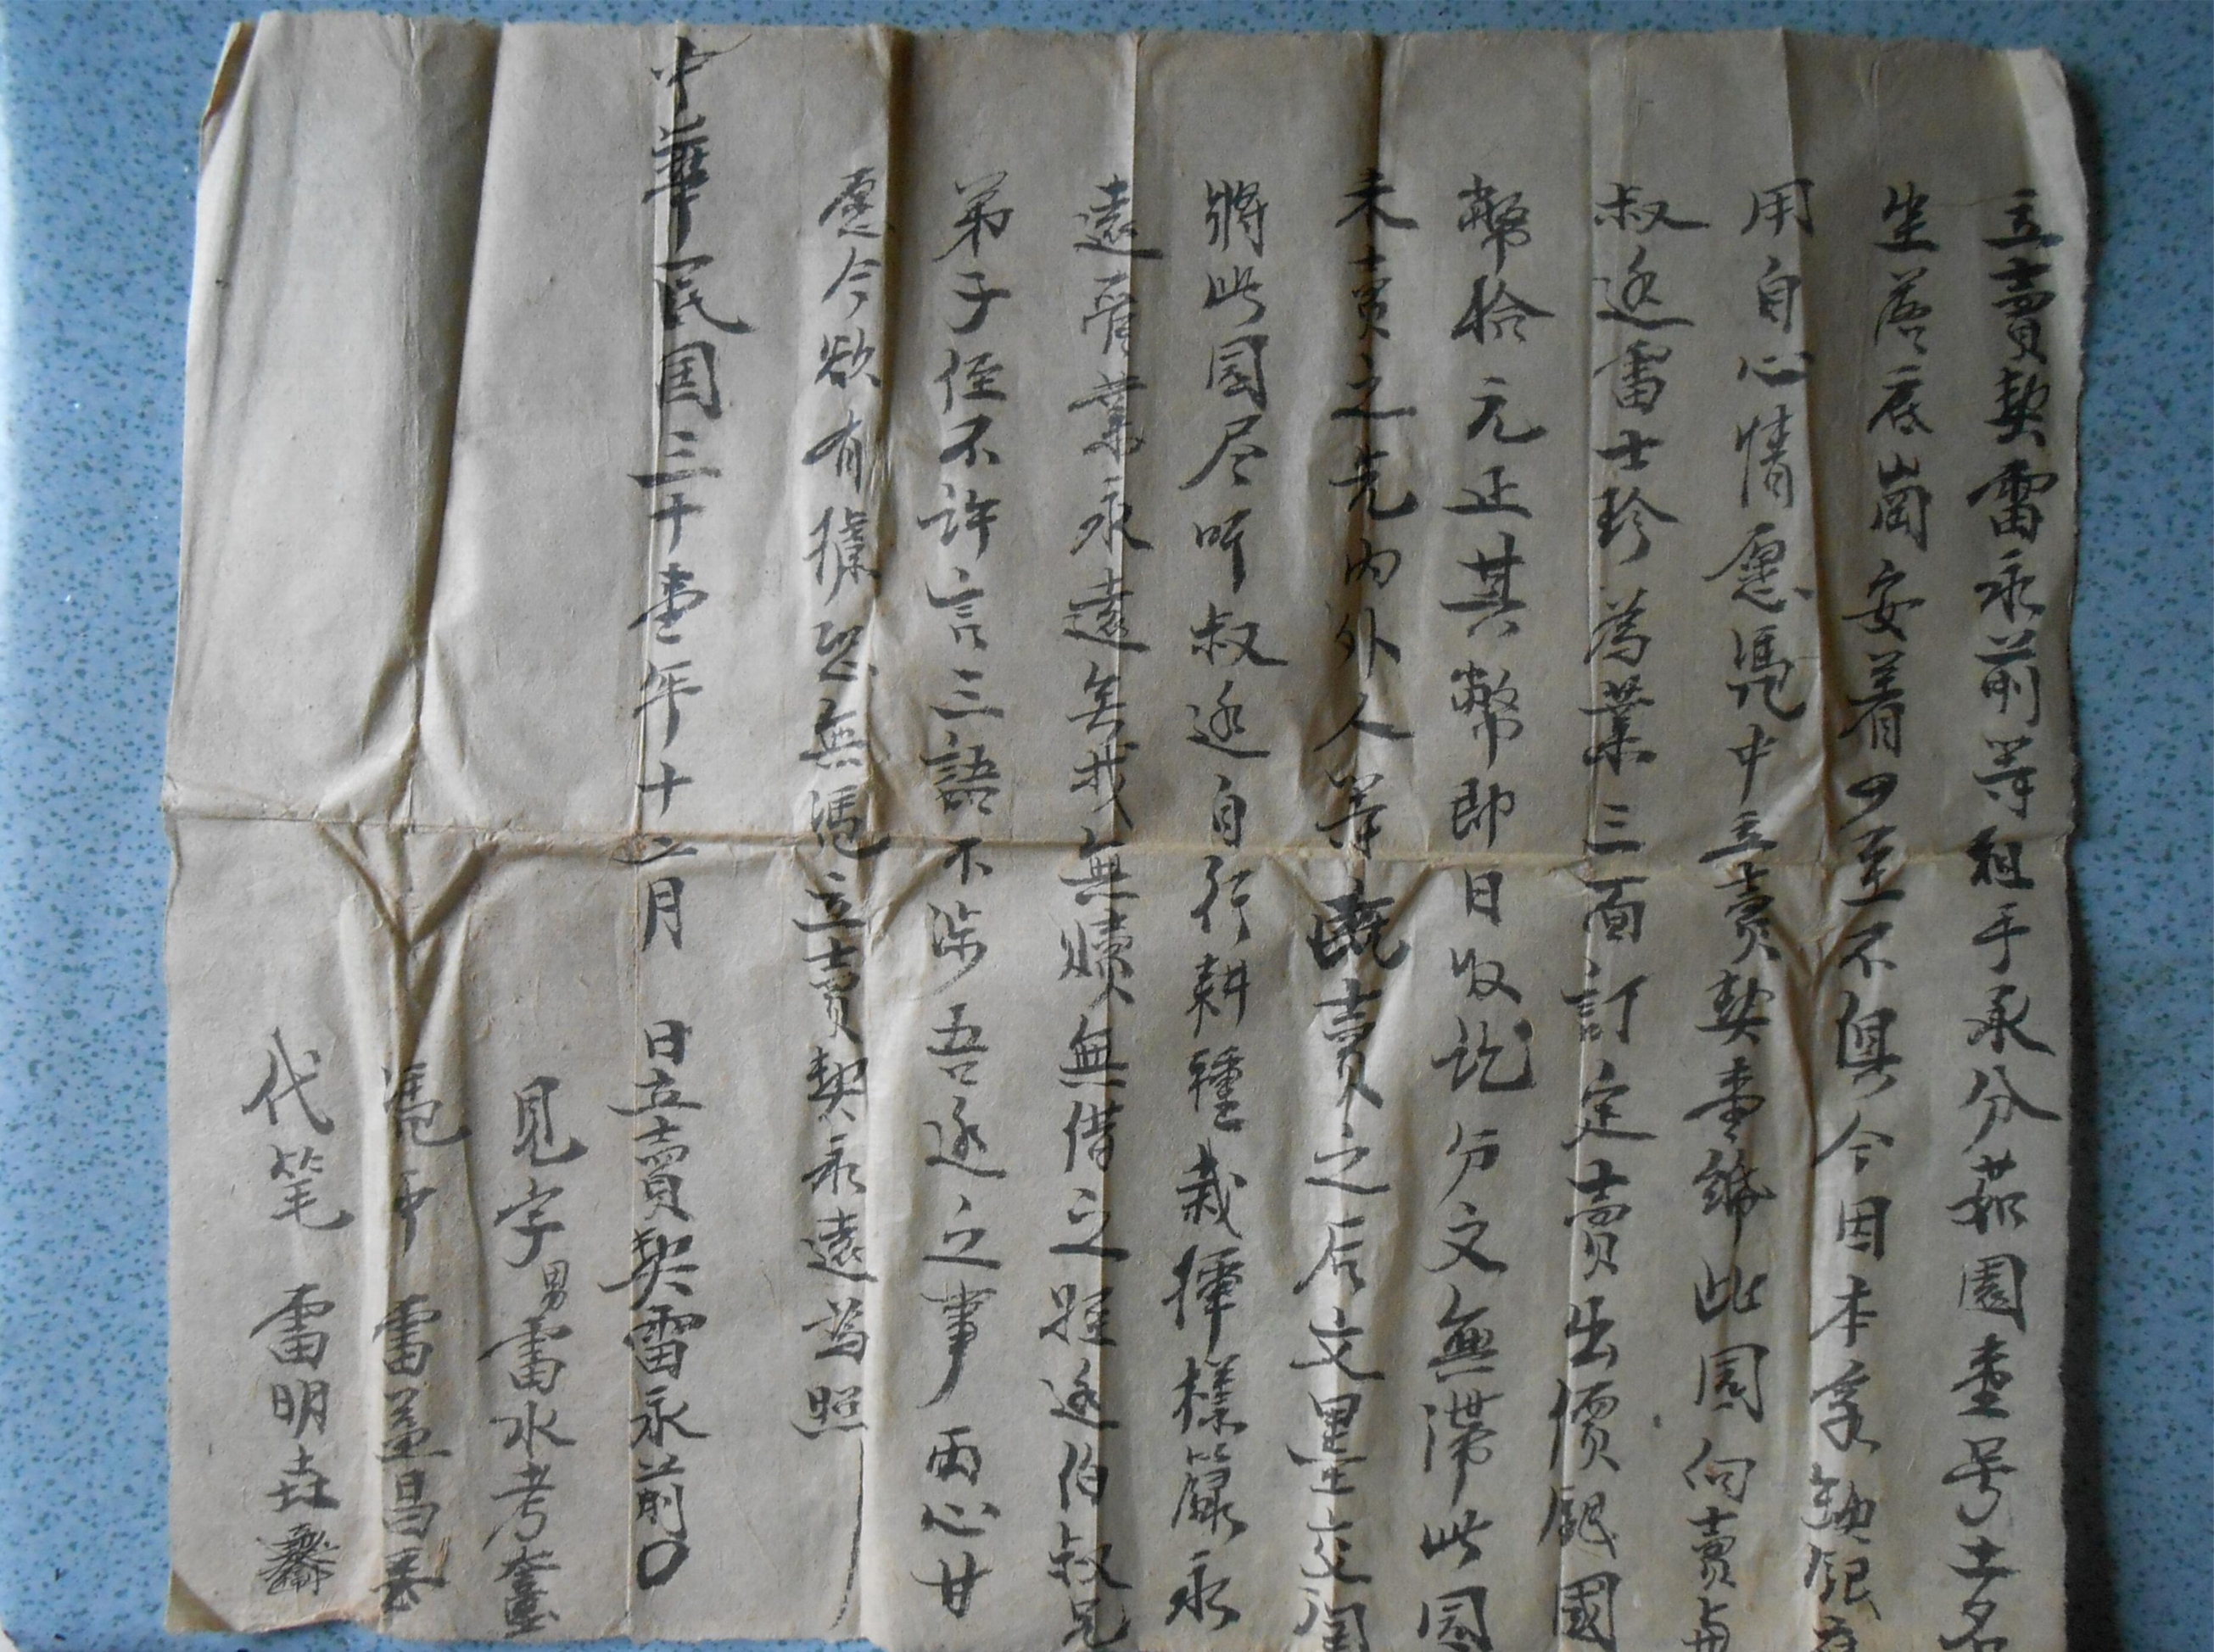 立賣契雷永前等祖手承分菇園壹号土名
坐落底崗安着四至不俱今因本家缺銀應
用自心情愿凴中立賣契壹紙此園向賣與
叔边雷士珍為業三面訂定賣出價國
幣拾元正其幣即日收訖分文無滯此園
未賣之先内外人等既賣之后文墨交関
將此園尽听叔边自行耕種栽插樣籙永
遠管業永遠矣我無贖無借之理边伯叔兄
弟子侄不許言三語不涉吾边之事両心甘
愿今欲有據恐無凴立賣契永遠為照
中華民国三十壹年十二月 日立賣契雷永前〇
見字男雷水考
凴中 雷盖昌
代笔 雷明垚